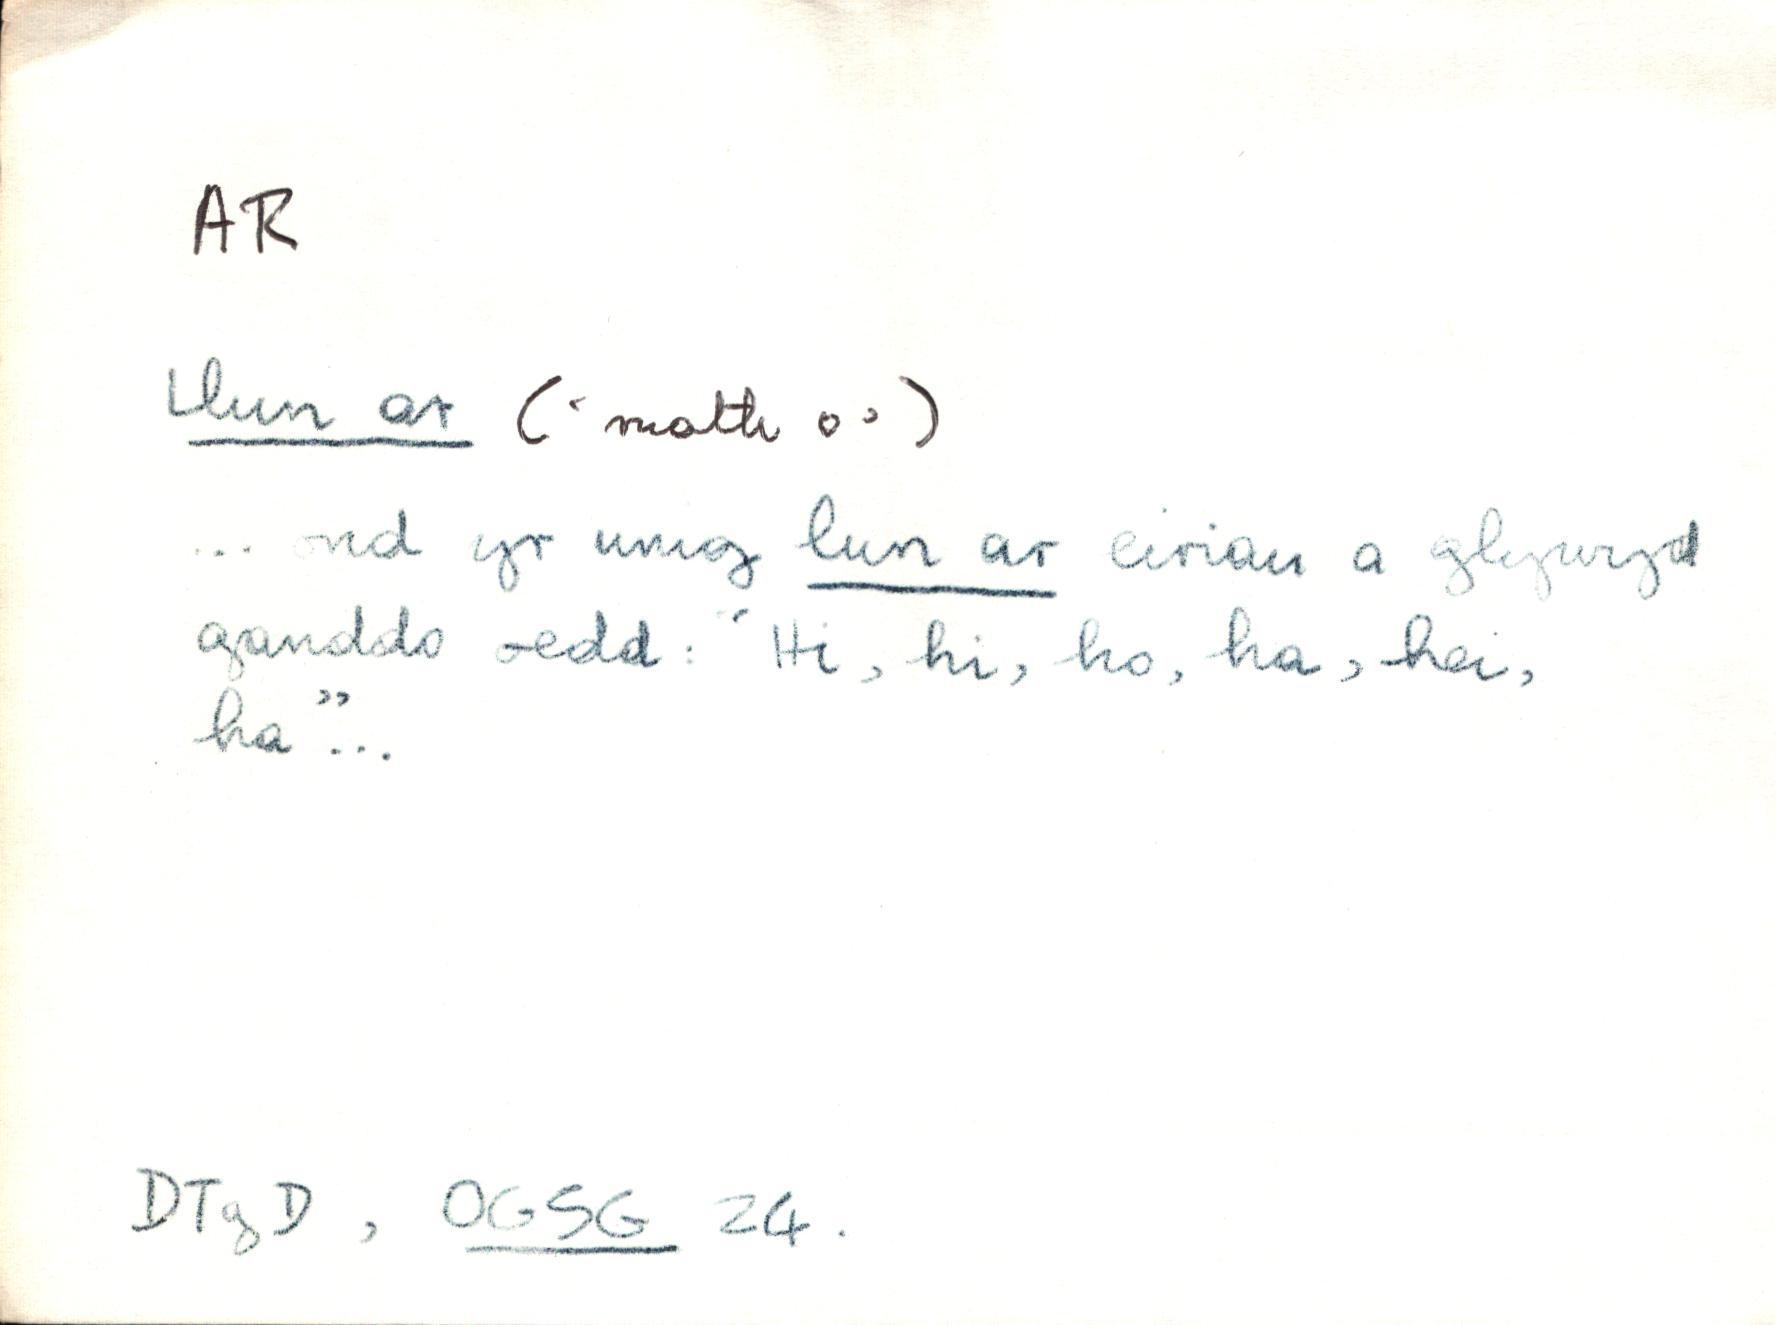 AR
Llun ar (‘math o’)
... ond yr unig lun ar eiriau a glywyd
ganddo oedd: “Hi, hi, ho, ha, hei,
ha”...
DTgD, OGSG 24.